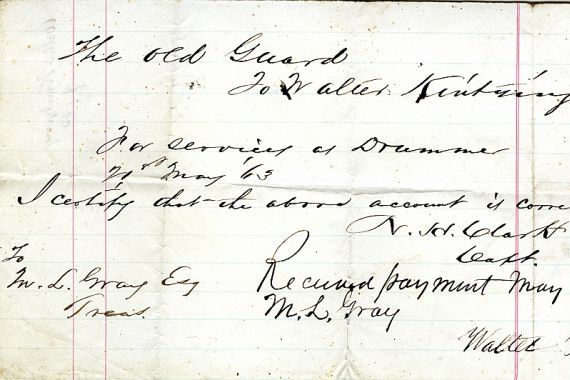 The Old Guard
To Walter
For services as Drummer
21st May '63
I certify that the above account is corre
N. H. Clark
Capt.
To
M. L. Gray Esq
Treas.
Received payment May
M. L. Gray
Walter